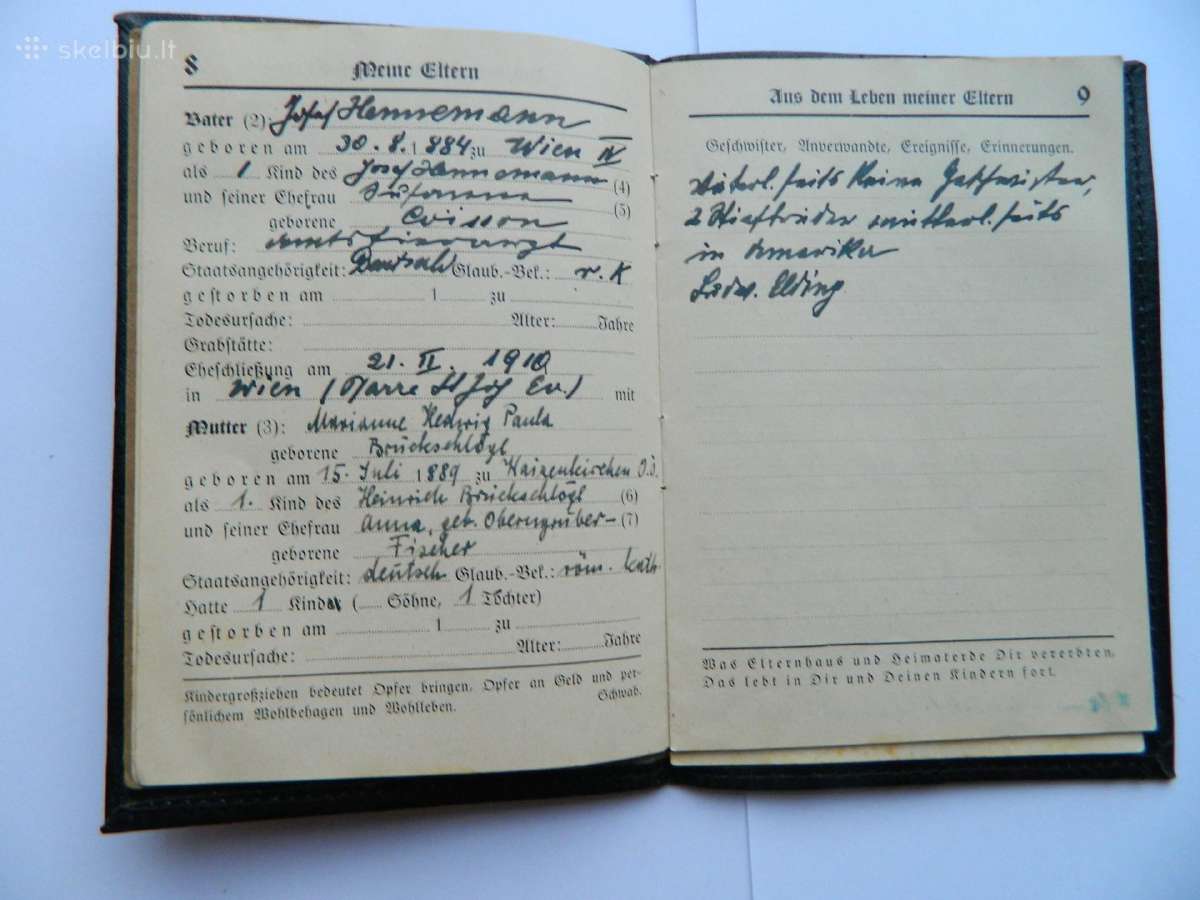 skelbiu.lt
8
Meine Eltern
Vater (2) Josef Hennemann
geboren am 30. 8. 1884 zu Wien IV
als 1 Kind des Josef Hennemann (4)
und seiner Ehefrau Susanna (5)
geborene Coisson
Beruf: Amtstierarzt
Staatsangehörigkeit: Deutsch Glaub.-Bek.: r. K
gestorben am 1 zu
Todesursache: Alter: Jahre
Grabstätte:
Eheschließung am 21. II. 1910
in Wien (Pfarre St Jos Ev.) mit
Mutter (3): Marianne Hedwig Paula
geborene Brückschlögl
geboren am 15. Juli 1889 zu Waizenkirchen O.ö.
als 1. Kind des Heinrich Brückschlögl (6)
und seiner Ehefrau Anna, geb. Oberngruber- (7)
geborene Fischer
Staatsangehörigkeit: deutsch Glaub.-Bek.: röm. kath.
Hatte 1 Kinder ( Söhne, 1 Töchter)
gestorben am 1 zu
Todesursache: Alter: Jahre
Kindergroßziehen bedeutet Opfer bringen, Opfer an Geld und per-
sönlichem Wohlbehagen und Wohlleben. Schwab.
Aus dem Leben meiner Eltern 9
Geschwister, Anverwandte, Ereignisse, Erinnerungen.
Väterl. seits keine Geschwister,
2 Stiefbrüder mütterl. seits
in Amerika
Ludw. Elding
Was Elternhaus und Heimaterde Dir vererbten,
Das lebt in Dir und Deinen Kindern fort.